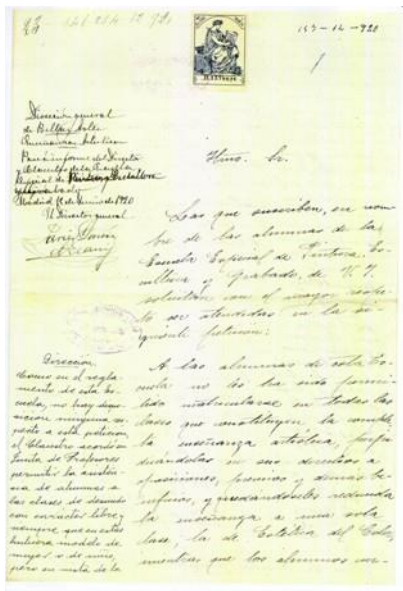 153-14-920
Dirección general
de Bellas Artes
Enseñanza Artística
Para informe del Director
y Claustro de la Escuela
Especial de Pintura Escultura
y Grabado
Madrid de Junio de 1920
El Director general
Ilmo. Sr.
Las que suscriben, en nom-
bre de las alumnas de la
Escuela Especial de Pintura, Es-
cultura y Grabado, de V. I.
solicitan con el mayor respe-
to ser atendidas en la si-
guiente petición:
A las alumnas de esta Es-
cuela no les ha sido permi-
tido matricularse en todas las
clases que constituyen la comple-
ta enseñanza artística, perju-
dicándolas en sus derechos a
oposiciones, premios y demás be-
neficios, y quedándoles reducida
la enseñanza a una sola
clase, la de Estética del Color,
mientras que los alumnos
Dirección
Como en el regla-
mento de esta Es-
cuela, no hay dispo-
sición ninguna res-
pecto a esta petición,
el Claustro acordó en
Junta de Profesores
permitir la asisten-
cia de alumnas a
las clases de desnudo
con carácter libre, y
siempre que en estas
hubiera modelo de
mujer o de niño,
pero en vista de la